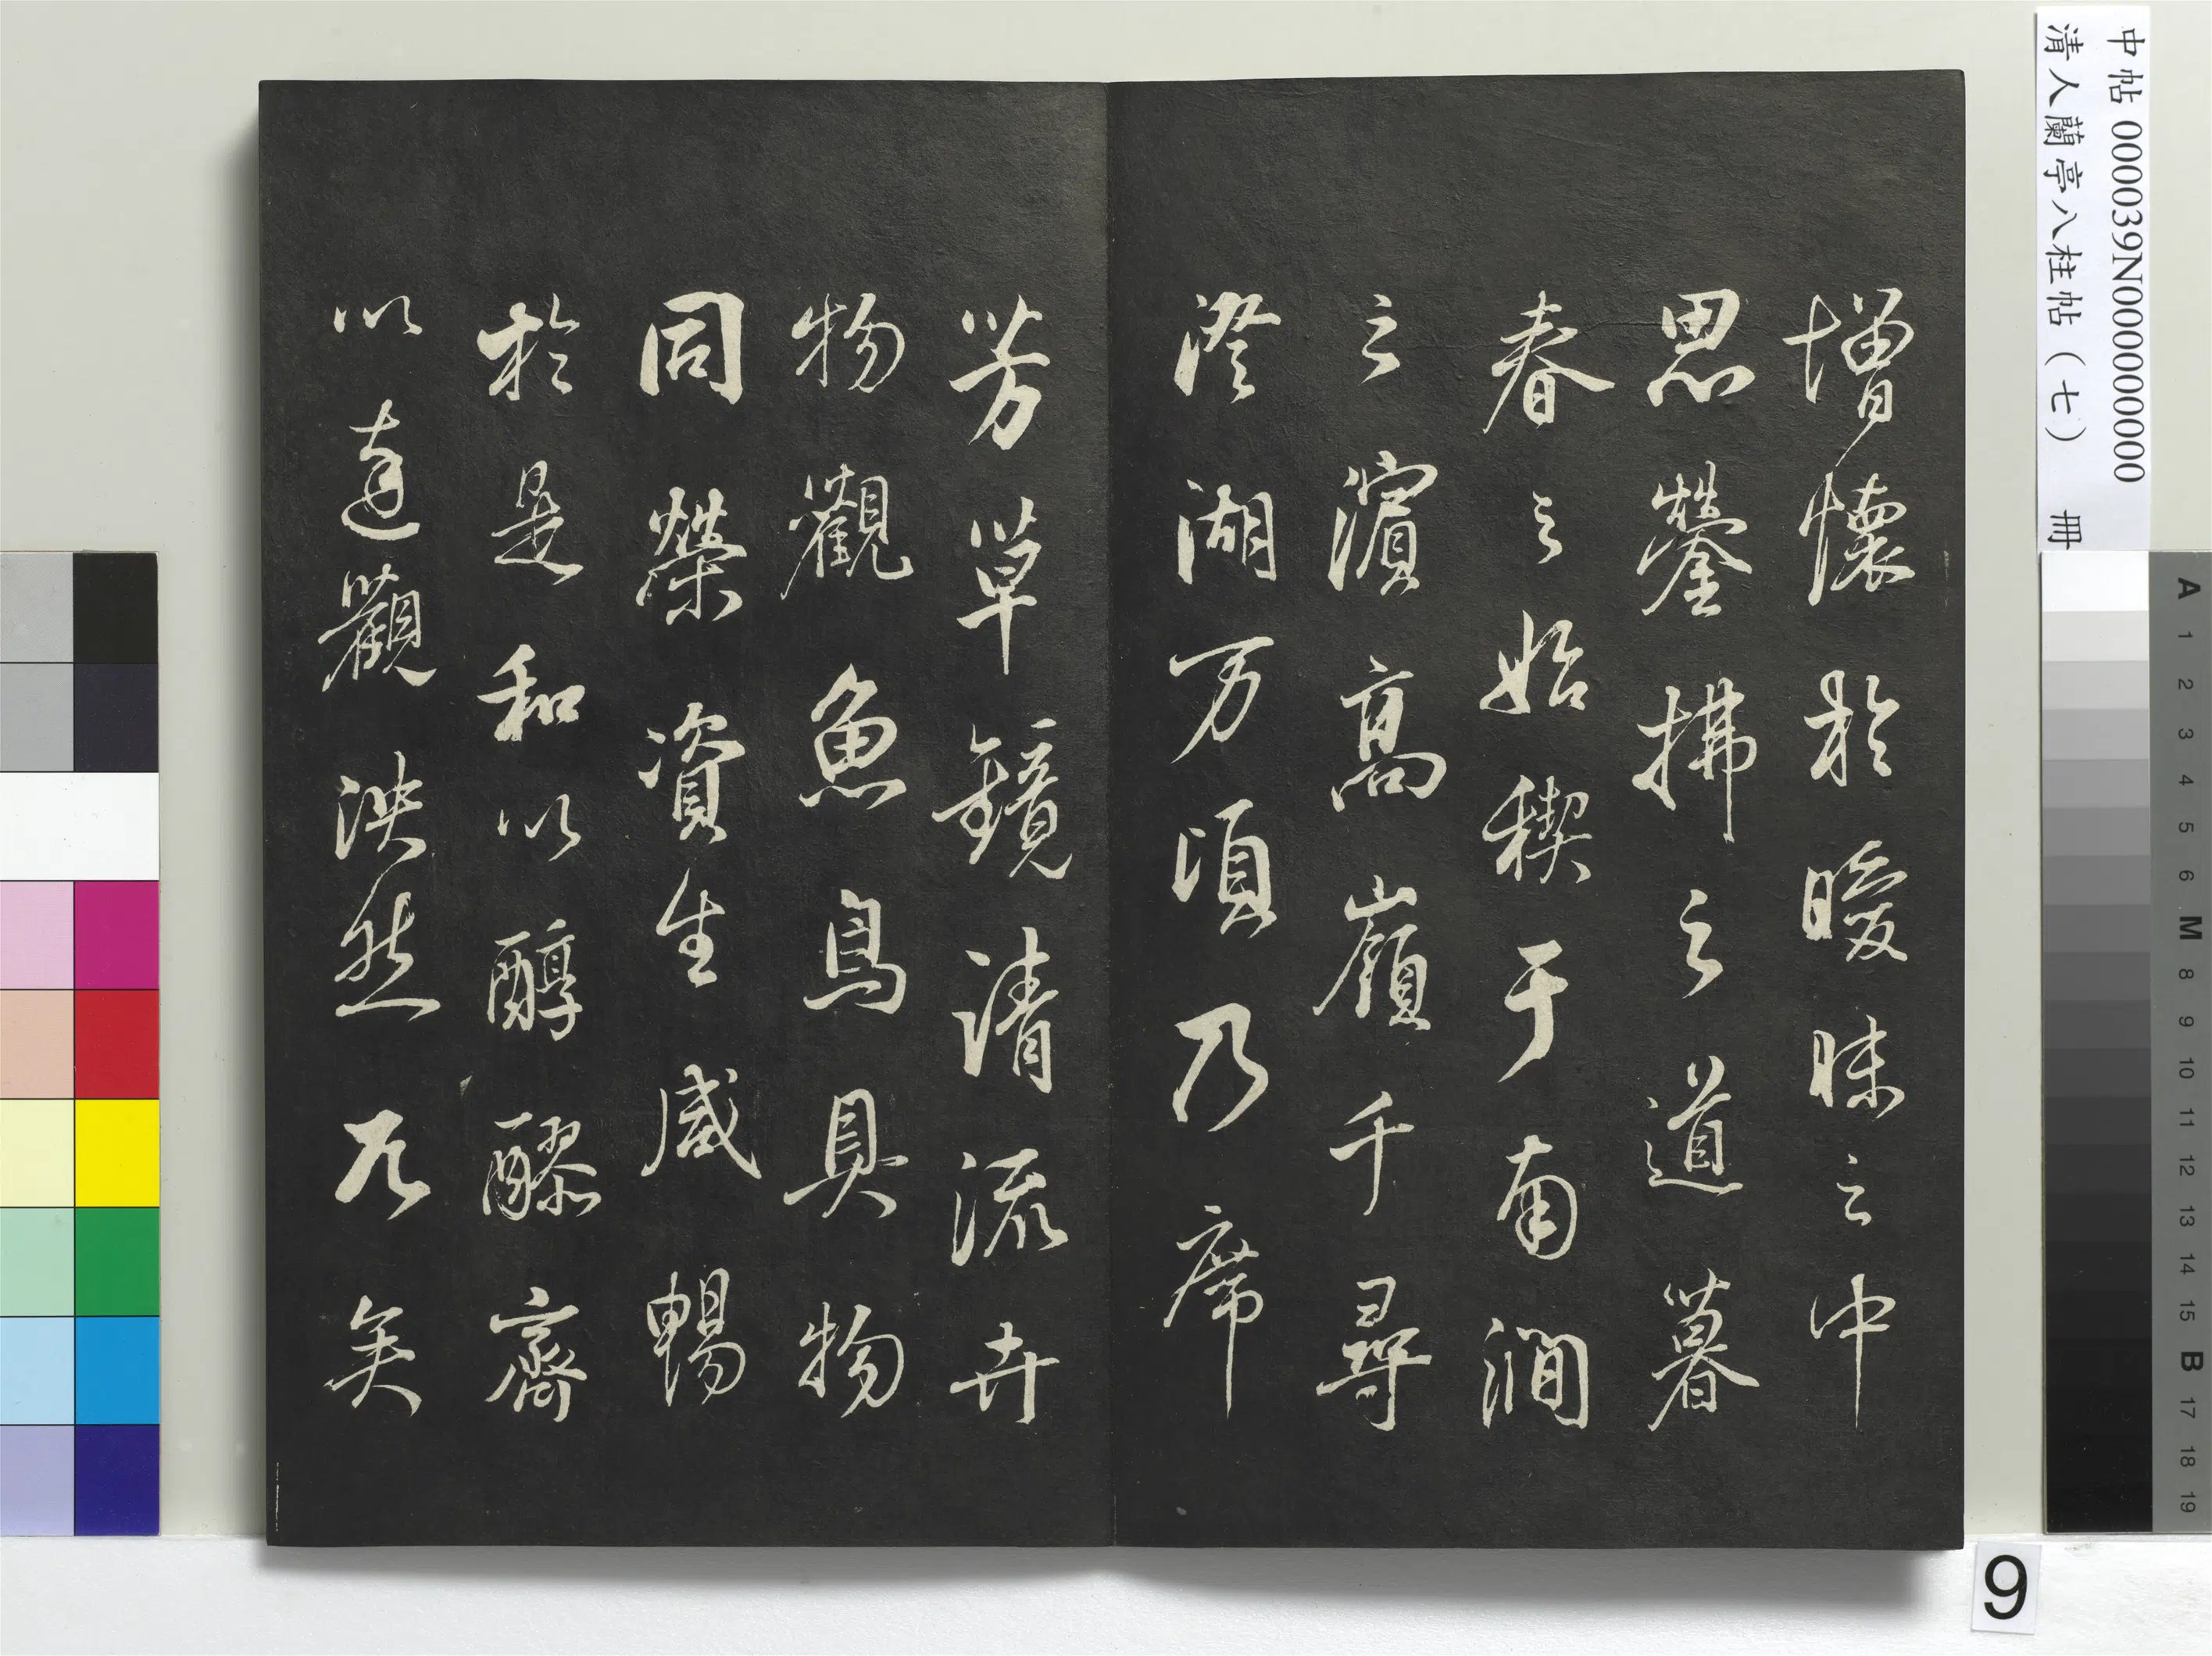 增懷於曖昧之中
思縈拂之道暮
春之始禊于南澗
之濱高嶺千尋
澄湖万頃乃席
芳草鏡清流卉
物觀魚鳥具物
同榮資生咸暢
於是和以醇醪齊
以達觀泱然兀矣
中帖 000039N000000000
清人蘭亭八柱帖(七) 冊
A 1 2 3 4 5 6 M 8 9 10 11 12 13 14 15 B 17 18 19
9